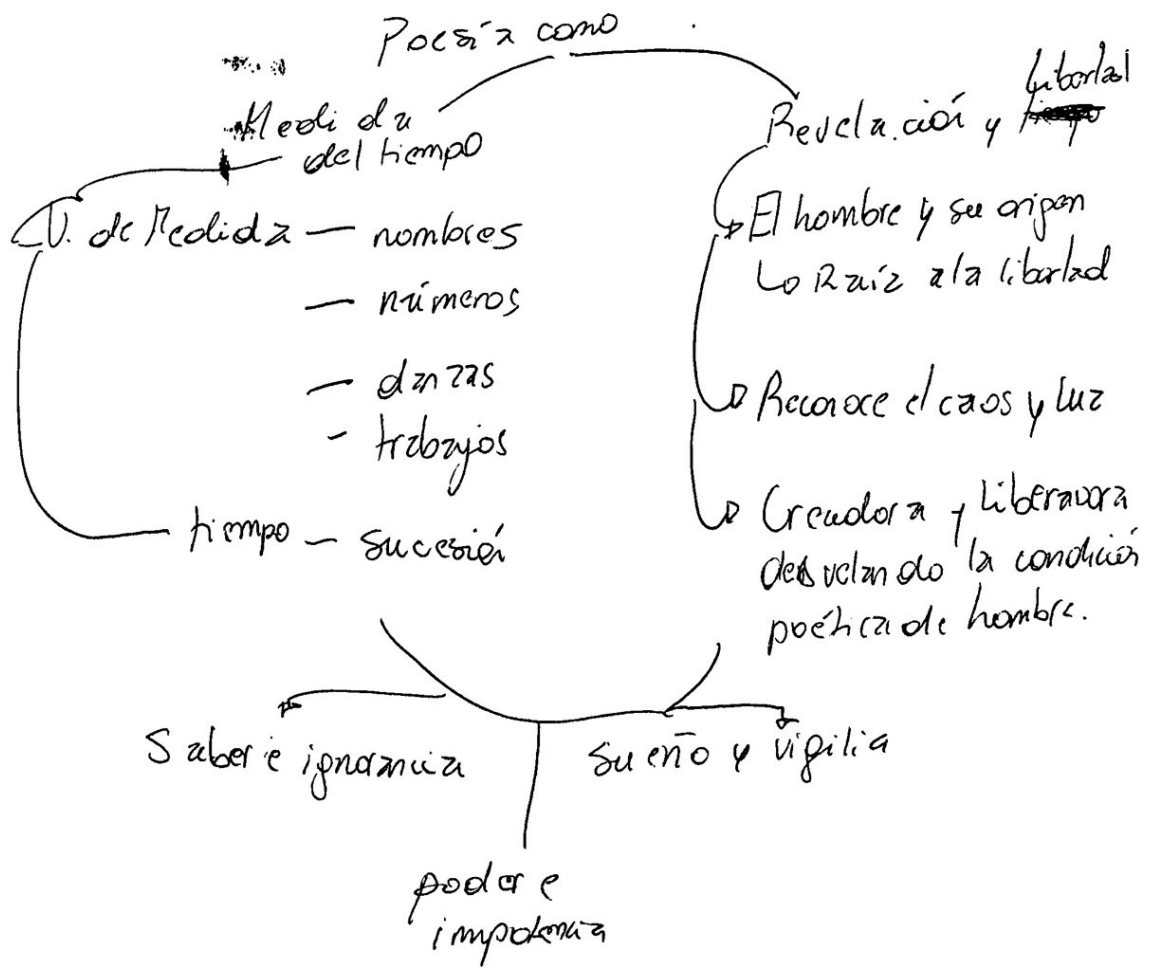 Poesía como
Medida
del tiempo
U. de Medida — nombres
— números
— danzas
- trabajos
tiempo — sucesión
Revelación y libertad
El hombre y su origen
Raíz a la libertad
Reconoce el caos y luz
Creadora y Liberavora
desvelando la condición
poética de hombre.
Saber e ignorancia
Sueño y vigilia
poder e
impotencia